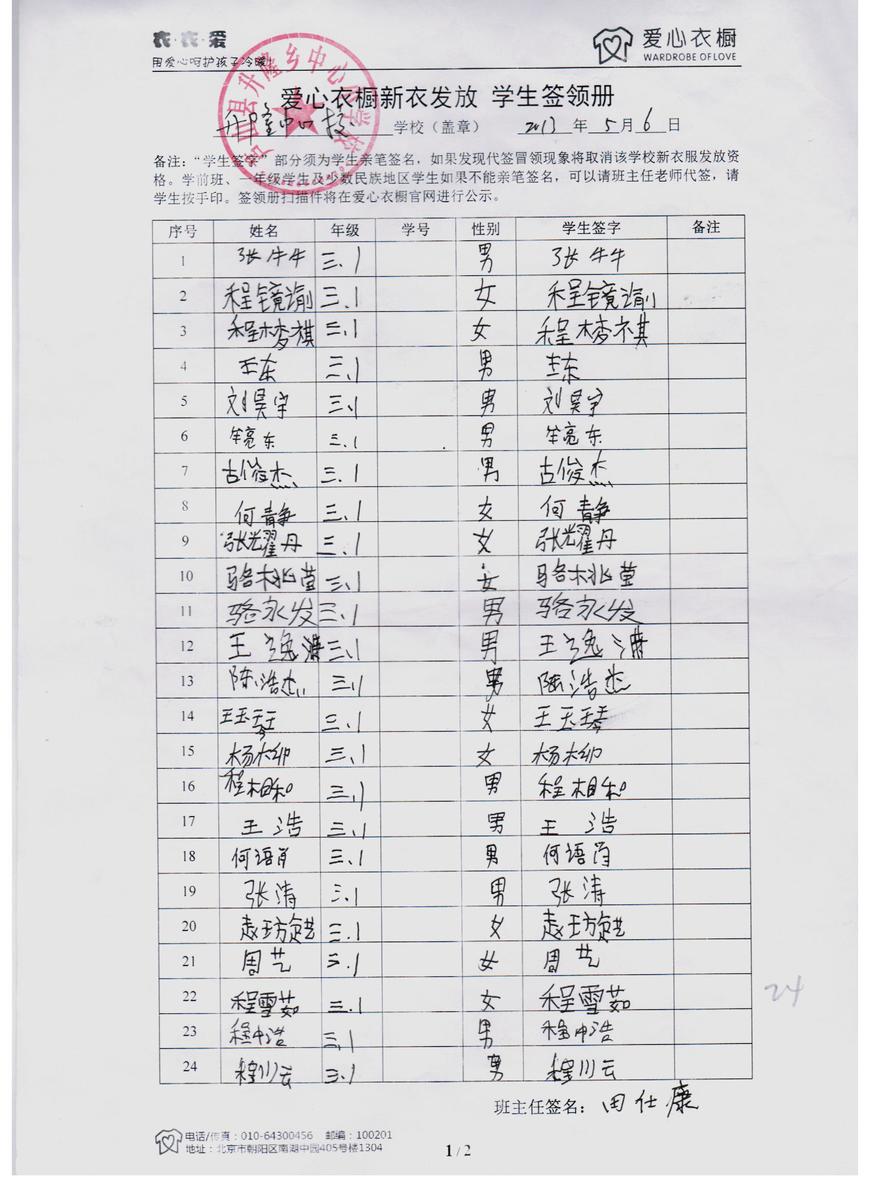 衣·衣·爱
用爱心呵护孩子冷暖!
爱心衣橱
WARDROBE OF LOVE
爱心衣橱新衣发放 学生签领册
升隆中心校 学校（盖章） 2013 年 5 月 6 日
县升隆乡中心小学校
备注：“学生签字”部分须为学生亲笔签名，如果发现代签冒领现象将取消该学校新衣服发放资
格。学前班、一年级学生及少数民族地区学生如果不能亲笔签名，可以请班主任老师代签，请
学生按手印。签领册扫描件将在爱心衣橱官网进行公示。
序号 姓名 年级 学号 性别 学生签字 备注
1 张牛牛 三.1 男 张牛牛
2 程镜渝 三.1 女 程镜渝
3 程梦祺 三.1 女 程梦祺
4 东 三.1 男 东
5 刘昊宇 三.1 男 刘昊宇
6 亮东 三.1 男 亮东
7 古俊杰 三.1 男 古俊杰
8 何静 三.1 女 何静
9 张耀丹 三.1 女 张耀丹
10 骆桃莹 三.1 女 骆桃莹
11 骆永发 三.1 男 骆永发
12 王逸涛 三.1 男 王逸涛
13 陈浩杰 三.1 男 陈浩杰
14 王玉琴 三.1 女 王玉琴
15 杨柳 三.1 女 杨柳
16 程相和 三.1 男 程相和
17 王浩 三.1 男 王浩
18 何语肖 三.1 男 何语肖
19 张涛 三.1 男 张涛
20 赵艺 三.1 女 赵艺
21 周艺 三.1 女 周艺
22 程雪茹 三.1 女 程雪茹
23 程中浩 三.1 男 程中浩
24 程川云 三.1 男 程川云
24
班主任签名：田仕康
电话/传真：010-64300456 邮编：100201
地址：北京市朝阳区南湖中园405号楼1304
1 / 2